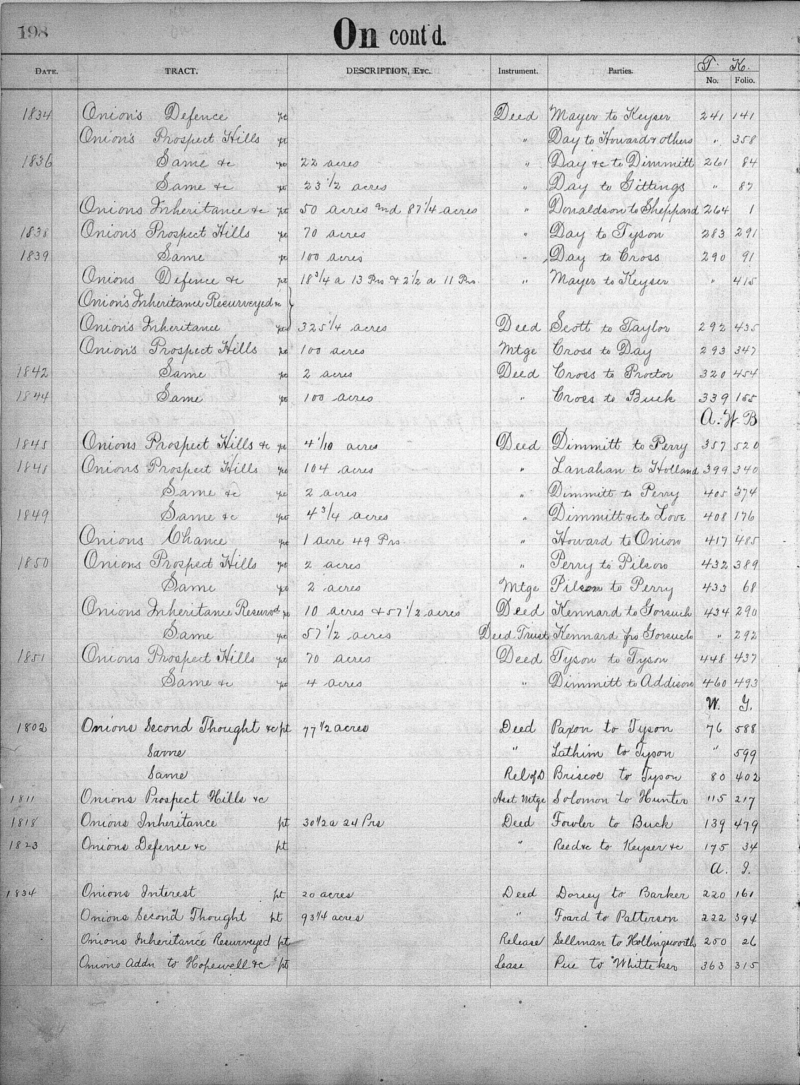 198
On cont'd.
T. K.
DATE. TRACT. DESCRIPTION, ETC. Instrument. Parties. No. Folio.
1834 Onion's Defence pt Deed Mayer to Keyser 241 141
Onion's Prospect Hills pt " Day to Howard & others " 358
1836 Same &c pt 22 acres " Day &c to Dimmitt 261 84
Same &c pt 23 1/2 acres " Day to Gittings " 87
Onions Inheritance &c pt 50 acres and 87 1/4 acres " Donaldson to Sheppard 264 1
1838 Onions Prospect Hills pt 70 acres " Day to Tyson 283 291
1839 Same pt 100 acres " Day to Cross 290 91
Onions Defence &c pt 18 3/4 a 13 Prs & 2 1/2 a 11 Prs " Mayer to Keyser " 415
Onion's Inheritance Resurveyed &c
Onion's Inheritance pt 325 1/4 acres Deed Scott to Taylor 292 435
Onion's Prospect Hills pt 100 acres Mtge Cross to Day 293 347
1842 Same pt 2 acres Deed Cross to Proctor 320 454
1844 Same pt 100 acres " Cross to Buck 339 165
A. W. B
1845 Onions Prospect Hills &c pt 4 1/10 acres Deed Dimmitt to Perry 357 520
1848 Onions Prospect Hills pt 104 acres " Lanahan to Holland 399 340
Same &c pt 2 acres " Dimmitt to Perry 405 374
1849 Same &c pt 4 3/4 acres " Dimmitt &c to Love 408 176
Onions Chance pt 1 acre 49 Prs " Howard to Onion 417 485
1850 Onions Prospect Hills pt 2 acres " Perry to Pilson 432 389
Same pt 2 acres Mtge Pilson to Perry 433 68
Onions Inheritance Resurvd pt 10 acres & 57 1/2 acres Deed Kennard to Gorsuch 434 290
Same pt 57 1/2 acres Deed Trust Kennard fro Gorsuch " 292
1851 Onions Prospect Hills pt 70 acres Deed Tyson to Tyson 448 437
Same &c pt 4 acres " Dimmitt to Addison 460 493
W. G.
1802 Onions Second Thought &c pt 77 1/2 acres Deed Paxon to Tyson 76 588
Same " Lathim to Tyson " 599
Same Rel of D Briscoe to Tyson 80 402
1811 Onions Prospect Hills &c Asst Mtge Solomon to Hunter 115 217
1818 Onions Inheritance pt 30 1/2 a 24 Prs Deed Fowler to Buck 139 479
1823 Onions Defence &c pt " Reed &c to Keyser &c 175 34
A. J.
1834 Onions Interest pt 20 acres Deed Dorsey to Barker 220 161
Onions Second Thought pt 93 1/4 acres " Foard to Patterson 222 394
Onions Inheritance Resurveyed pt Release Sellman to Hollingsworth 250 26
Onions Addn to Hopewell &c pt Lease Pue to Whitteker 363 315